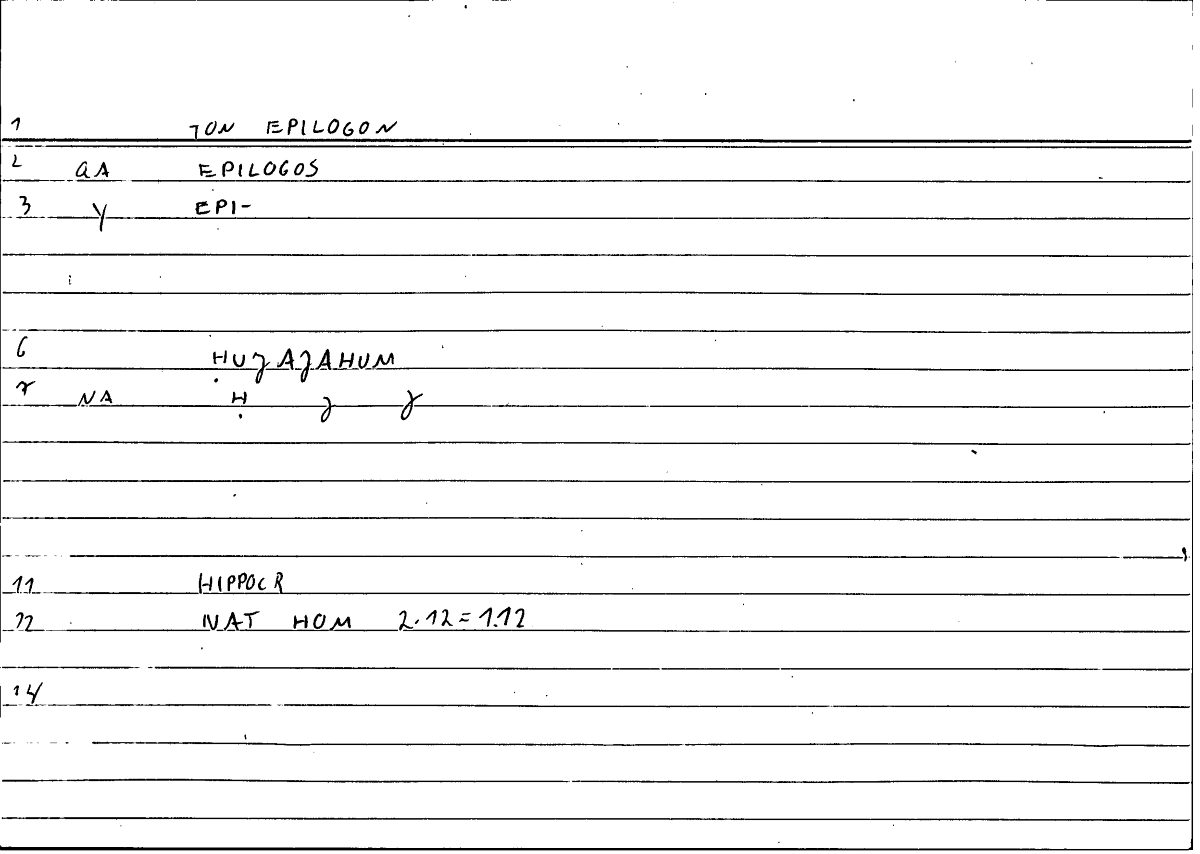 1 TON EPILOGON
2 QA EPILOGOS
3 Y EPI-
6 ḤUJAJAHUM
7 NA Ḥ J J
11 HIPPOCR
12 NAT HOM 2.12=1.12
14